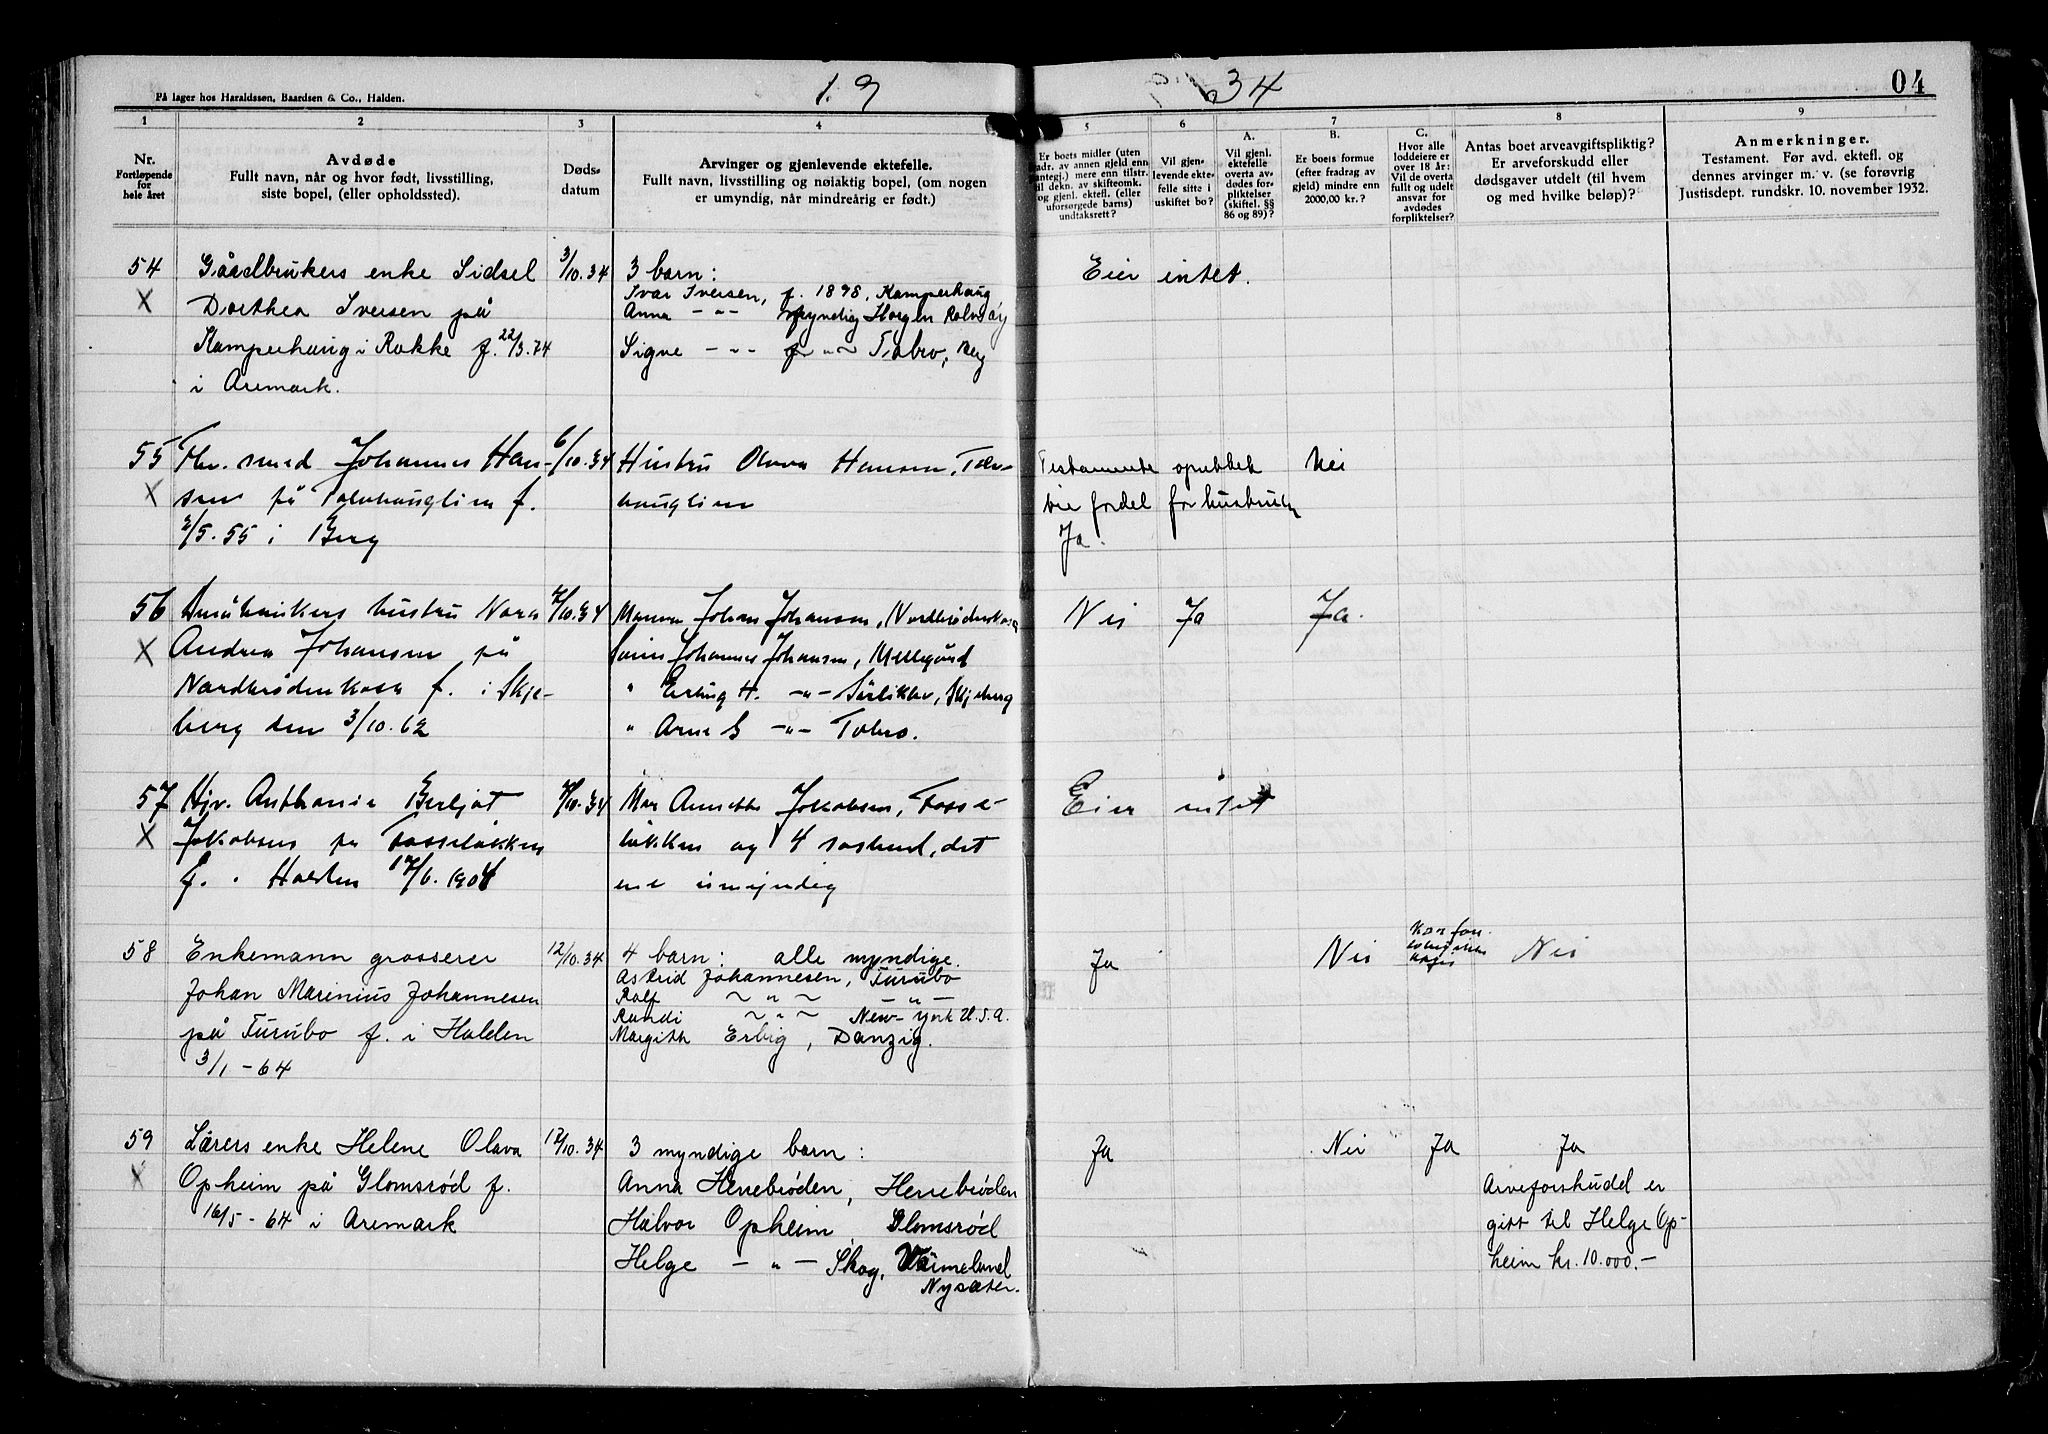 På lager hos Haraldssen, Baardsen & Co., Halden.
19 34
04
1 2 3 4 5 6 7 8 9
Nr.
Fortløpende
for
hele året
Avdøde
Fullt navn, når og hvor født, livsstilling,
siste bopel, (eller opholdssted).
Døds-
datum
Arvinger og gjenlevende ektefelle.
Fullt navn, livsstilling og nøiaktig bopel, (om nogen
er umyndig, når mindreårig er født.)
Er boets midler (uten
adr. av annen gjeld enn
antegj.) mere enn tilstr.
til dekn. av skifteomk.
og gjenl. ektefl. (eller
uforsørgede barns)
undtaksrett?
Vil gjen-
levende ekte-
felle sitte i
uskiftet bo?
A.
Vil gjenl.
ektefelle
overta av-
dødes for-
pliktelser
(skiftel. §§
86 og 89)?
B.
Er boets formue
(efter fradrag av
gjeld) mindre enn
2000,00 kr.?
C.
Hvor alle
loddeiere er
over 18 år:
Vil de overta
fullt og udelt
ansvar for
avdødes
forpliktelser?
Antas boet arveavgiftspliktig?
Er arveforskudd eller
dødsgaver utdelt (til hvem
og med hvilke beløp)?
Anmerkninger.
Testament. Før avd. ektefl. og
dennes arvinger m. v. (se forøvrig
Justisdept. rundskr. 10. november 1932.
54 Gårdbrukers enke Sidsel 3/10.34 3 barn: Eier intet.
X Dorthea Iversen på Ivar Iversen, f. 1898, Kamperhaug
Anna - " - myndig Horgen Rolvsøy
Kamperhaug i Rokke f. 22/3.74 Signe - " - " ~ Tobro, Berg
i Aremark.
55 Fhv. smed Johannes Han- 6/10.34 Hustru Olava Hansen, Tolv- Testamente oprettet Nei
X sen på Tolvhauglien f. hauglien til fordel for hustruen
2/5.55 i Berg Ja.
56 Småbrukers hustru Nora 7/10.34 Mannen Johan Johansen, Nordbrødenkasa Nei Ja Ja.
X Andrea Johansen på Sønn Johannes Johansen, Mellegård
Nordbrødenkasa f. i Skje- " Erling H. - " - Skjeberg
berg den 3/10.62 " Arne G - " - Tobro.
57 Hjv. Anthonie Berljot 7/10.34 Mor Annette Jakobsen, Fosse- Eier intet
X Jakobsen på Fosseløkken løkken og 4 søskend, det
f. i Halden 17/6.1904 ene umyndig
58 Enkemann grosserer 12/10.34 4 barn: alle myndige. Ja Nei Nei
Johan Marinius Johannesen Astrid Johannesen, Furubo
Rolf ~ " ~ - " -
på Furubo f. i Halden Randi ~ " ~ New-York U.S.A.
3/1-64 Margith Erbig, Danzig.
59 Lærers enke Helene Olava 12/10.34 3 myndige barn: Ja Nei Ja Ja
X Opheim på Glomsrød f. Anna Herrebrøden, Herrebrøden Arveforskudd er
16/5-64 i Aremark Halvor Opheim Glomsrød gitt til Helge Op-
Helge - " - Skog, Värmeland heim kr. 10.000.-
Nysæter.